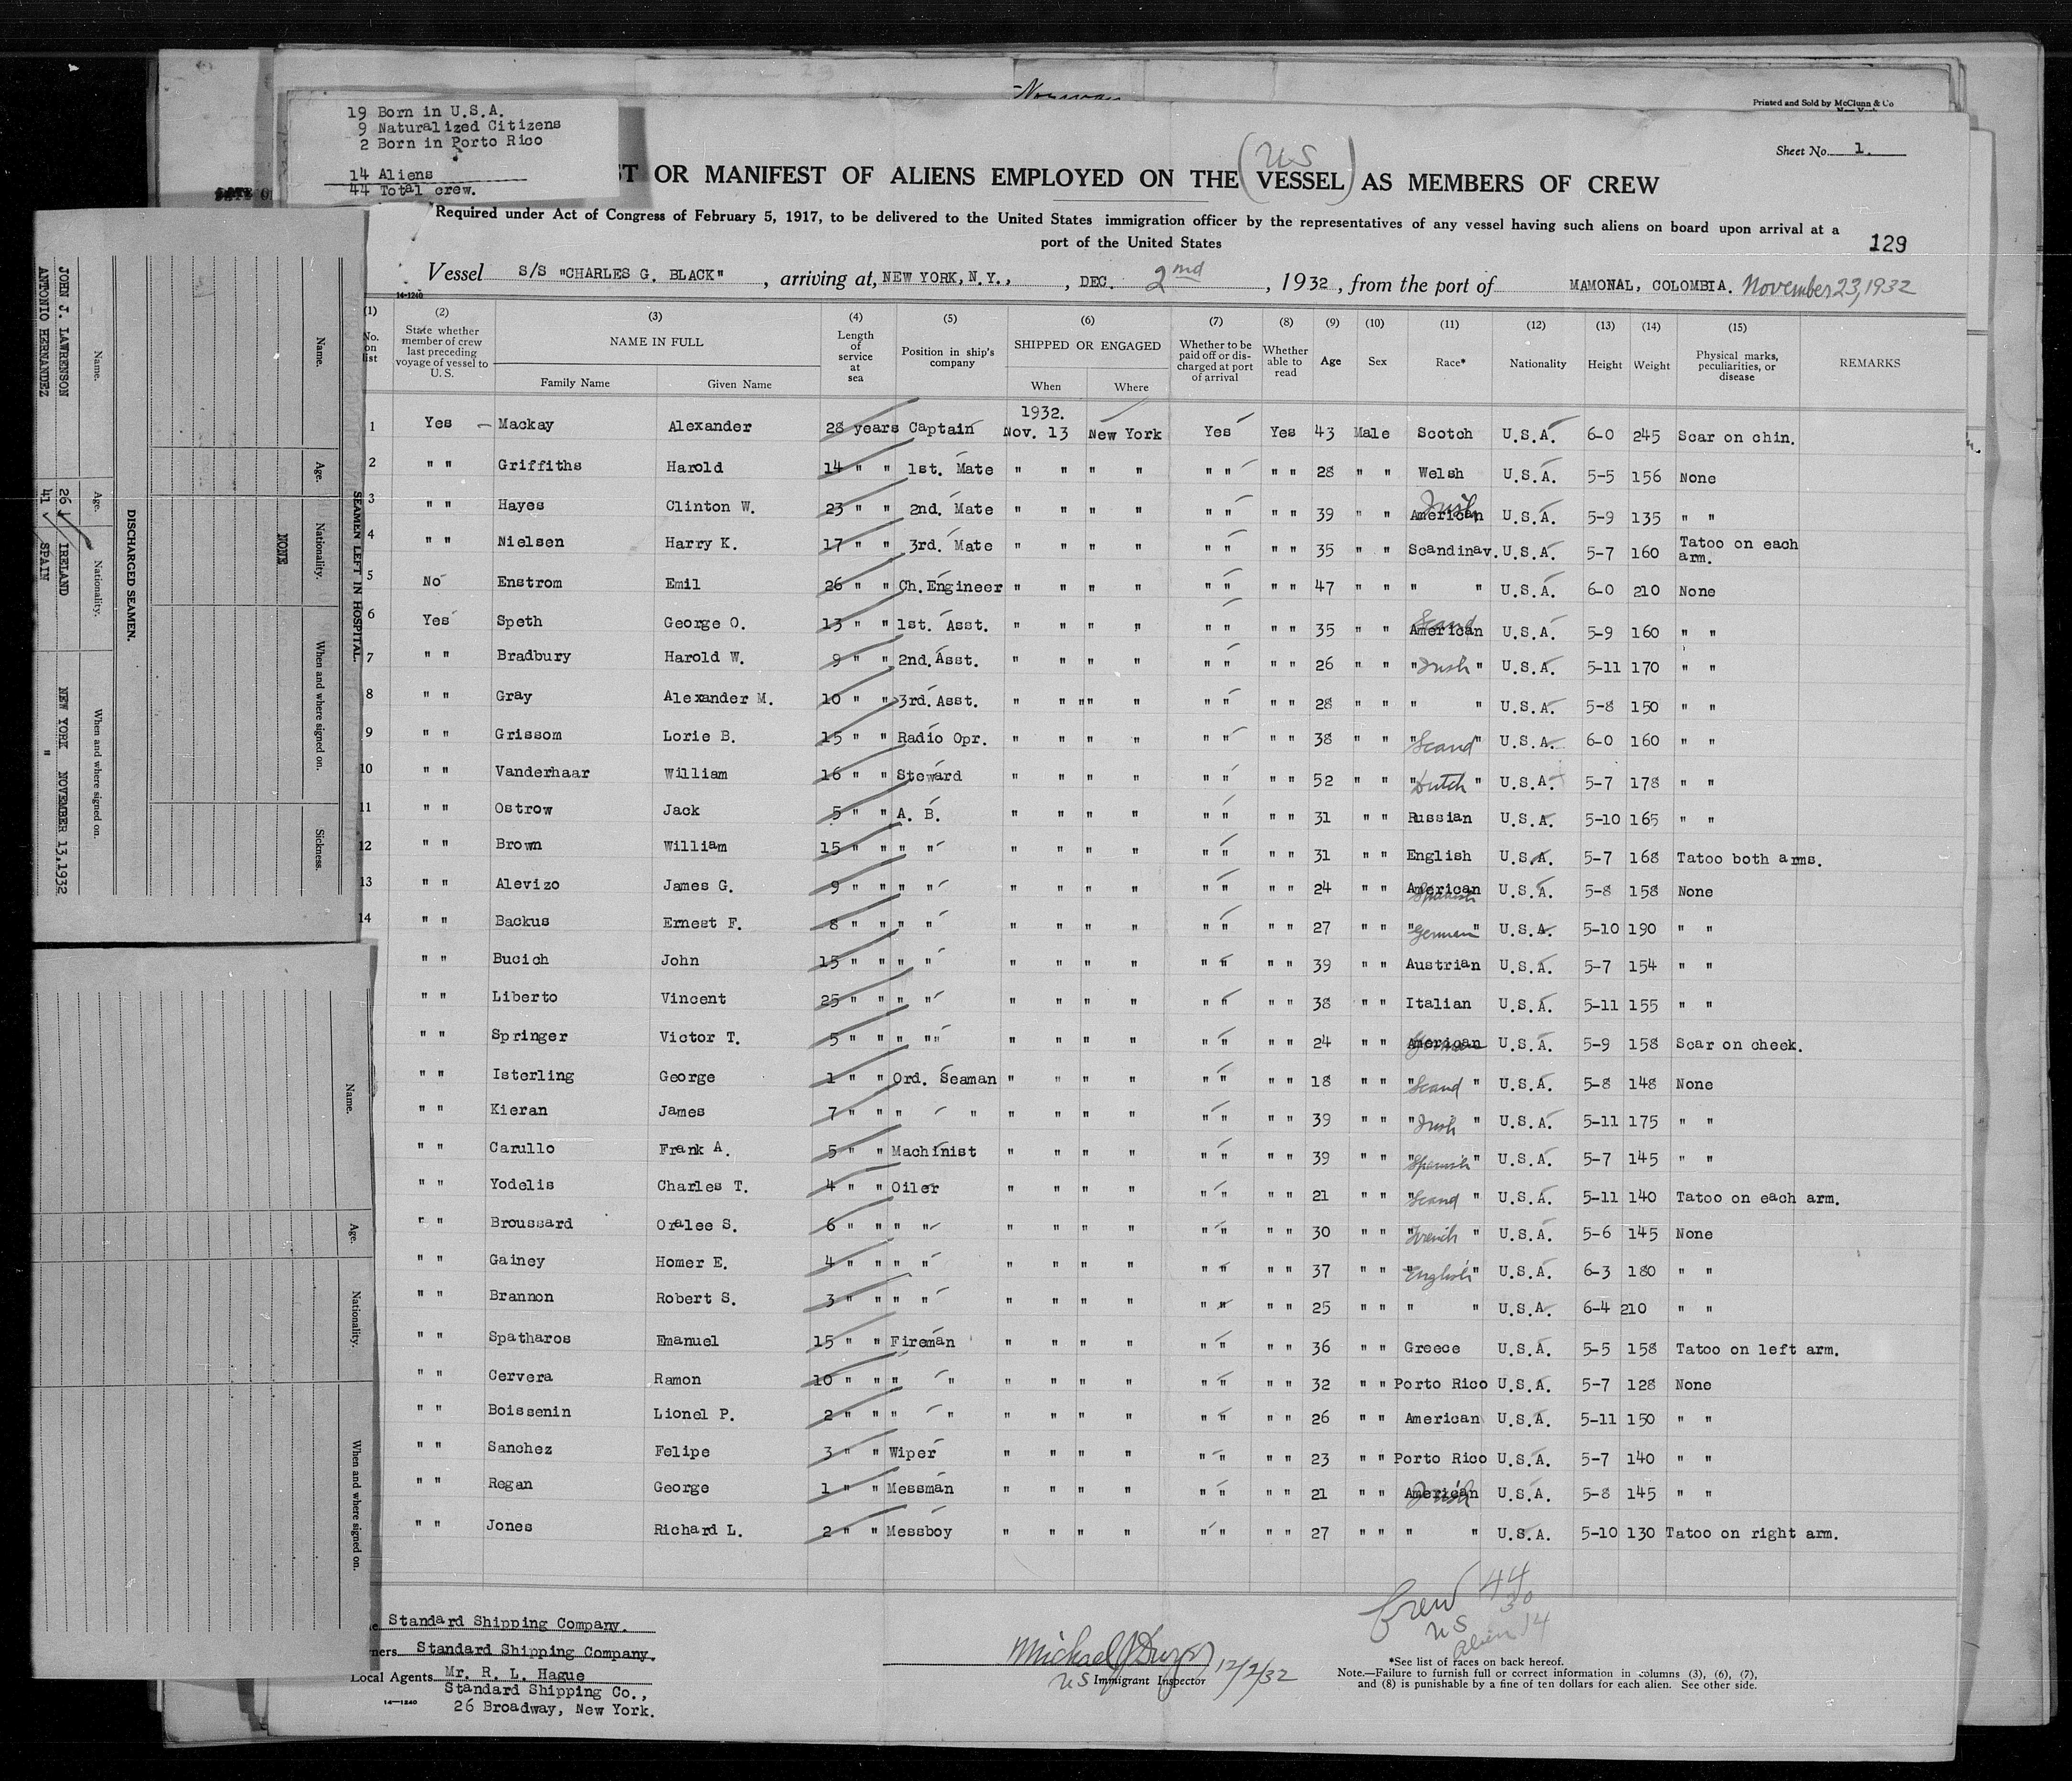 Norway
Printed and Sold by McClunn & Co
19 Born in U.S.A.
9 Naturalized Citizens
2 Born in Porto Rico
14 Aliens
44 Total crew.
Sheet No. 1.
ST OR MANIFEST OF ALIENS EMPLOYED ON THE (US VESSEL) AS MEMBERS OF CREW
Required under Act of Congress of February 5, 1917, to be delivered to the United States immigration officer by the representatives of any vessel having such aliens on board upon arrival at a
port of the United States
129
Vessel S/S "CHARLES G. BLACK", arriving at, NEW YORK, N.Y., , DEC. 2nd, 1932, from the port of MAMONAL, COLOMBIA. November 23, 1932
14-1240
(1) (2) (3) (4) (5) (6) (7) (8) (9) (10) (11) (12) (13) (14) (15)
No. on list State whether member of crew last preceding voyage of vessel to U.S. NAME IN FULL Length of service at sea Position in ship's company SHIPPED OR ENGAGED Whether to be paid off or discharged at port of arrival Whether able to read Age Sex Race* Nationality Height Weight Physical marks, peculiarities, or disease REMARKS
Family Name Given Name When Where
1932.
1 Yes — Mackay Alexander 28 years Captain Nov. 13 New York Yes Yes 43 Male Scotch U.S.A. 6-0 245 Scar on chin.
2 " " Griffiths Harold 14 " " 1st. Mate " " " " " " " " 28 " " Welsh U.S.A. 5-5 156 None
3 " " Hayes Clinton W. 23 " " 2nd. Mate " " " " " " " " 39 " " American Irish U.S.A. 5-9 135 " "
4 " " Nielsen Harry K. 17 " " 3rd. Mate " " " " " " " " 35 " " Scandinav. U.S.A. 5-7 160 Tatoo on each arm.
5 No Enstrom Emil 26 " " Ch. Engineer " " " " " " " " 47 " " " " U.S.A. 6-0 210 None
6 Yes Speth George O. 13 " " 1st. Asst. " " " " " " " " 35 " " American Scand U.S.A. 5-9 160 " "
7 " " Bradbury Harold W. 9 " " 2nd. Asst. " " " " " " " " 26 " " " Irish " U.S.A. 5-11 170 " "
8 " " Gray Alexander M. 10 " " 3rd. Asst. " " " " " " " " 28 " " " " U.S.A. 5-8 150 " "
9 " " Grissom Lorie B. 15 " " Radio Opr. " " " " " " " " 38 " " " Scand " U.S.A. 6-0 160 " "
10 " " Vanderhaar William 16 " " Steward " " " " " " " " 52 " " " Dutch " U.S.A. 5-7 178 " "
11 " " Ostrow Jack 5 " " A. B. " " " " " " " " 31 " " Russian U.S.A. 5-10 165 " "
12 " " Brown William 15 " " " " " " " " " " " " 31 " " English U.S.A. 5-7 168 Tatoo both arms.
13 " " Alevizo James G. 9 " " " " " " " " " " " " 24 " " American Spanish U.S.A. 5-8 158 None
14 " " Backus Ernest F. 8 " " " " " " " " " " " " 27 " " " German " U.S.A. 5-10 190 " "
" " Bucich John 15 " " " " " " " " " " " " 39 " " Austrian U.S.A. 5-7 154 " "
" " Liberto Vincent 25 " " " " " " " " " " " " 38 " " Italian U.S.A. 5-11 155 " "
" " Springer Victor T. 5 " " " " " " " " " " " " 24 " " American German U.S.A. 5-9 158 Scar on cheek.
" " Isterling George 1 " " Ord. Seaman " " " " " " " " 18 " " " Scand " U.S.A. 5-8 148 None
" " Kieran James 7 " " " " " " " " " " " " 39 " " " Irish " U.S.A. 5-11 175 " "
" " Carullo Frank A. 5 " " Machinist " " " " " " " " 39 " " " Spanish " U.S.A. 5-7 145 " "
" " Yodelis Charles T. 4 " " Oiler " " " " " " " " 21 " " " Scand " U.S.A. 5-11 140 Tatoo on each arm.
" " Broussard Oralee S. 6 " " " " " " " " " " " " 30 " " " French " U.S.A. 5-6 145 None
" " Gainey Homer E. 4 " " " " " " " " " " " " 37 " " " English " U.S.A. 6-3 180 " "
" " Brannon Robert S. 3 " " " " " " " " " " " " 25 " " " " U.S.A. 6-4 210 " "
" " Spatharos Emanuel 15 " " Fireman " " " " " " " " 36 " " Greece U.S.A. 5-5 158 Tatoo on left arm.
" " Cervera Ramon 10 " " " " " " " " " " " " 32 " " Porto Rico U.S.A. 5-7 128 None
" " Boissenin Lionel P. 2 " " " " " " " " " " " " 26 " " American U.S.A. 5-11 150 " "
" " Sanchez Felipe 3 " " Wiper " " " " " " " " 23 " " Porto Rico U.S.A. 5-7 140 " "
" " Regan George 1 " " Messman " " " " " " " " 21 " " American Irish U.S.A. 5-8 145 " "
" " Jones Richard L. 2 " " Messboy " " " " " " " " 27 " " " " U.S.A. 5-10 130 Tatoo on right arm.
Crew 44
US 30
Alien 14
Standard Shipping Company.
ners Standard Shipping Company.
Local Agents Mr. R. L. Hague
Standard Shipping Co.,
26 Broadway, New York.
14—1240
12/2/32
US Immigrant Inspector
*See list of races on back hereof.
Note.—Failure to furnish full or correct information in columns (3), (6), (7),
and (8) is punishable by a fine of ten dollars for each alien. See other side.
SEAMEN LEFT IN HOSPITAL.
Name. Age. Nationality. When and where signed on. Sickness.
NONE
DISCHARGED SEAMEN.
Name. Age. Nationality. When and where signed on.
JOHN J. LAWRENSON 26 IRELAND NEW YORK NOVEMBER 13, 1932
ANTONIO HERNANDEZ 41 SPAIN "
Name. Age. Nationality. When and where signed on.